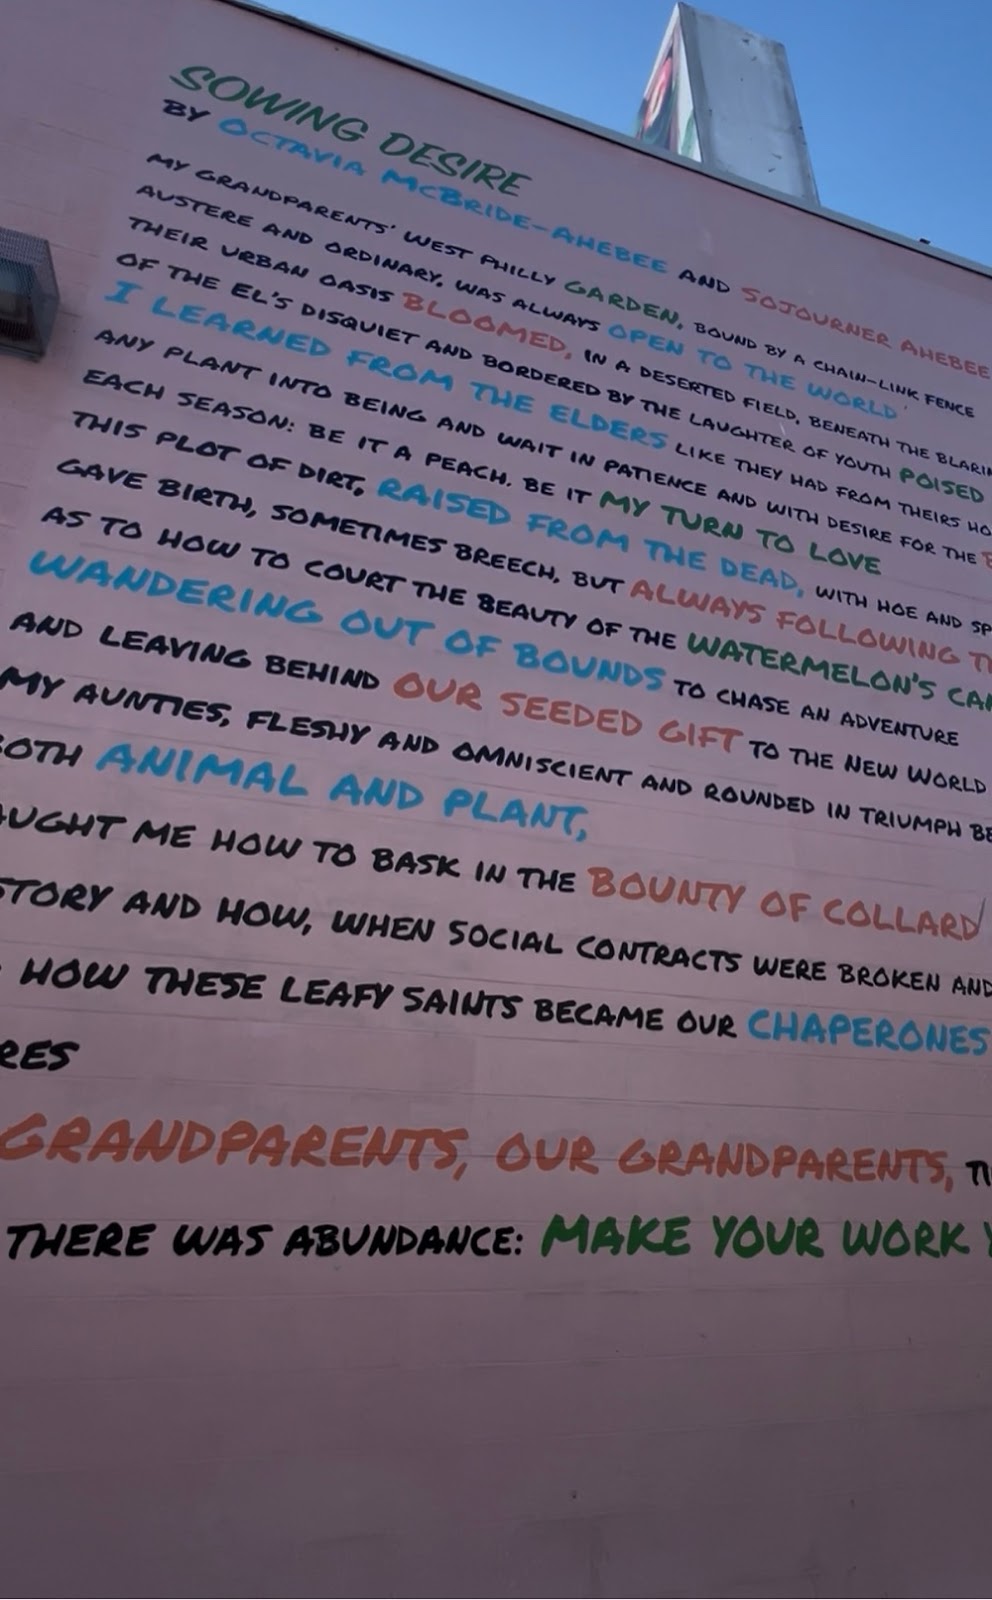 SOWING DESIRE
BY OCTAVIA McBRIDE-AHEBEE AND SOJOURNER AHEBEE
MY GRANDPARENTS' WEST PHILLY GARDEN, BOUND BY A CHAIN-LINK FENCE
AUSTERE AND ORDINARY, WAS ALWAYS OPEN TO THE WORLD
THEIR URBAN OASIS BLOOMED, IN A DESERTED FIELD, BENEATH THE BLARIN
OF THE EL'S DISQUIET AND BORDERED BY THE LAUGHTER OF YOUTH POISED
I LEARNED FROM THE ELDERS LIKE THEY HAD FROM THEIRS HO
ANY PLANT INTO BEING AND WAIT IN PATIENCE AND WITH DESIRE FOR THE
EACH SEASON: BE IT A PEACH, BE IT MY TURN TO LOVE
THIS PLOT OF DIRT, RAISED FROM THE DEAD, WITH HOE AND SP
GAVE BIRTH, SOMETIMES BREECH, BUT ALWAYS FOLLOWING T
AS TO HOW TO COURT THE BEAUTY OF THE WATERMELON'S CA
WANDERING OUT OF BOUNDS TO CHASE AN ADVENTURE
AND LEAVING BEHIND OUR SEEDED GIFT TO THE NEW WORLD
MY AUNTIES, FLESHY AND OMNISCIENT AND ROUNDED IN TRIUMPH BE
OTH ANIMAL AND PLANT,
AUGHT ME HOW TO BASK IN THE BOUNTY OF COLLARD
STORY AND HOW, WHEN SOCIAL CONTRACTS WERE BROKEN AND
HOW THESE LEAFY SAINTS BECAME OUR CHAPERONES
RES
GRANDPARENTS, OUR GRANDPARENTS,
THERE WAS ABUNDANCE: MAKE YOUR WORK